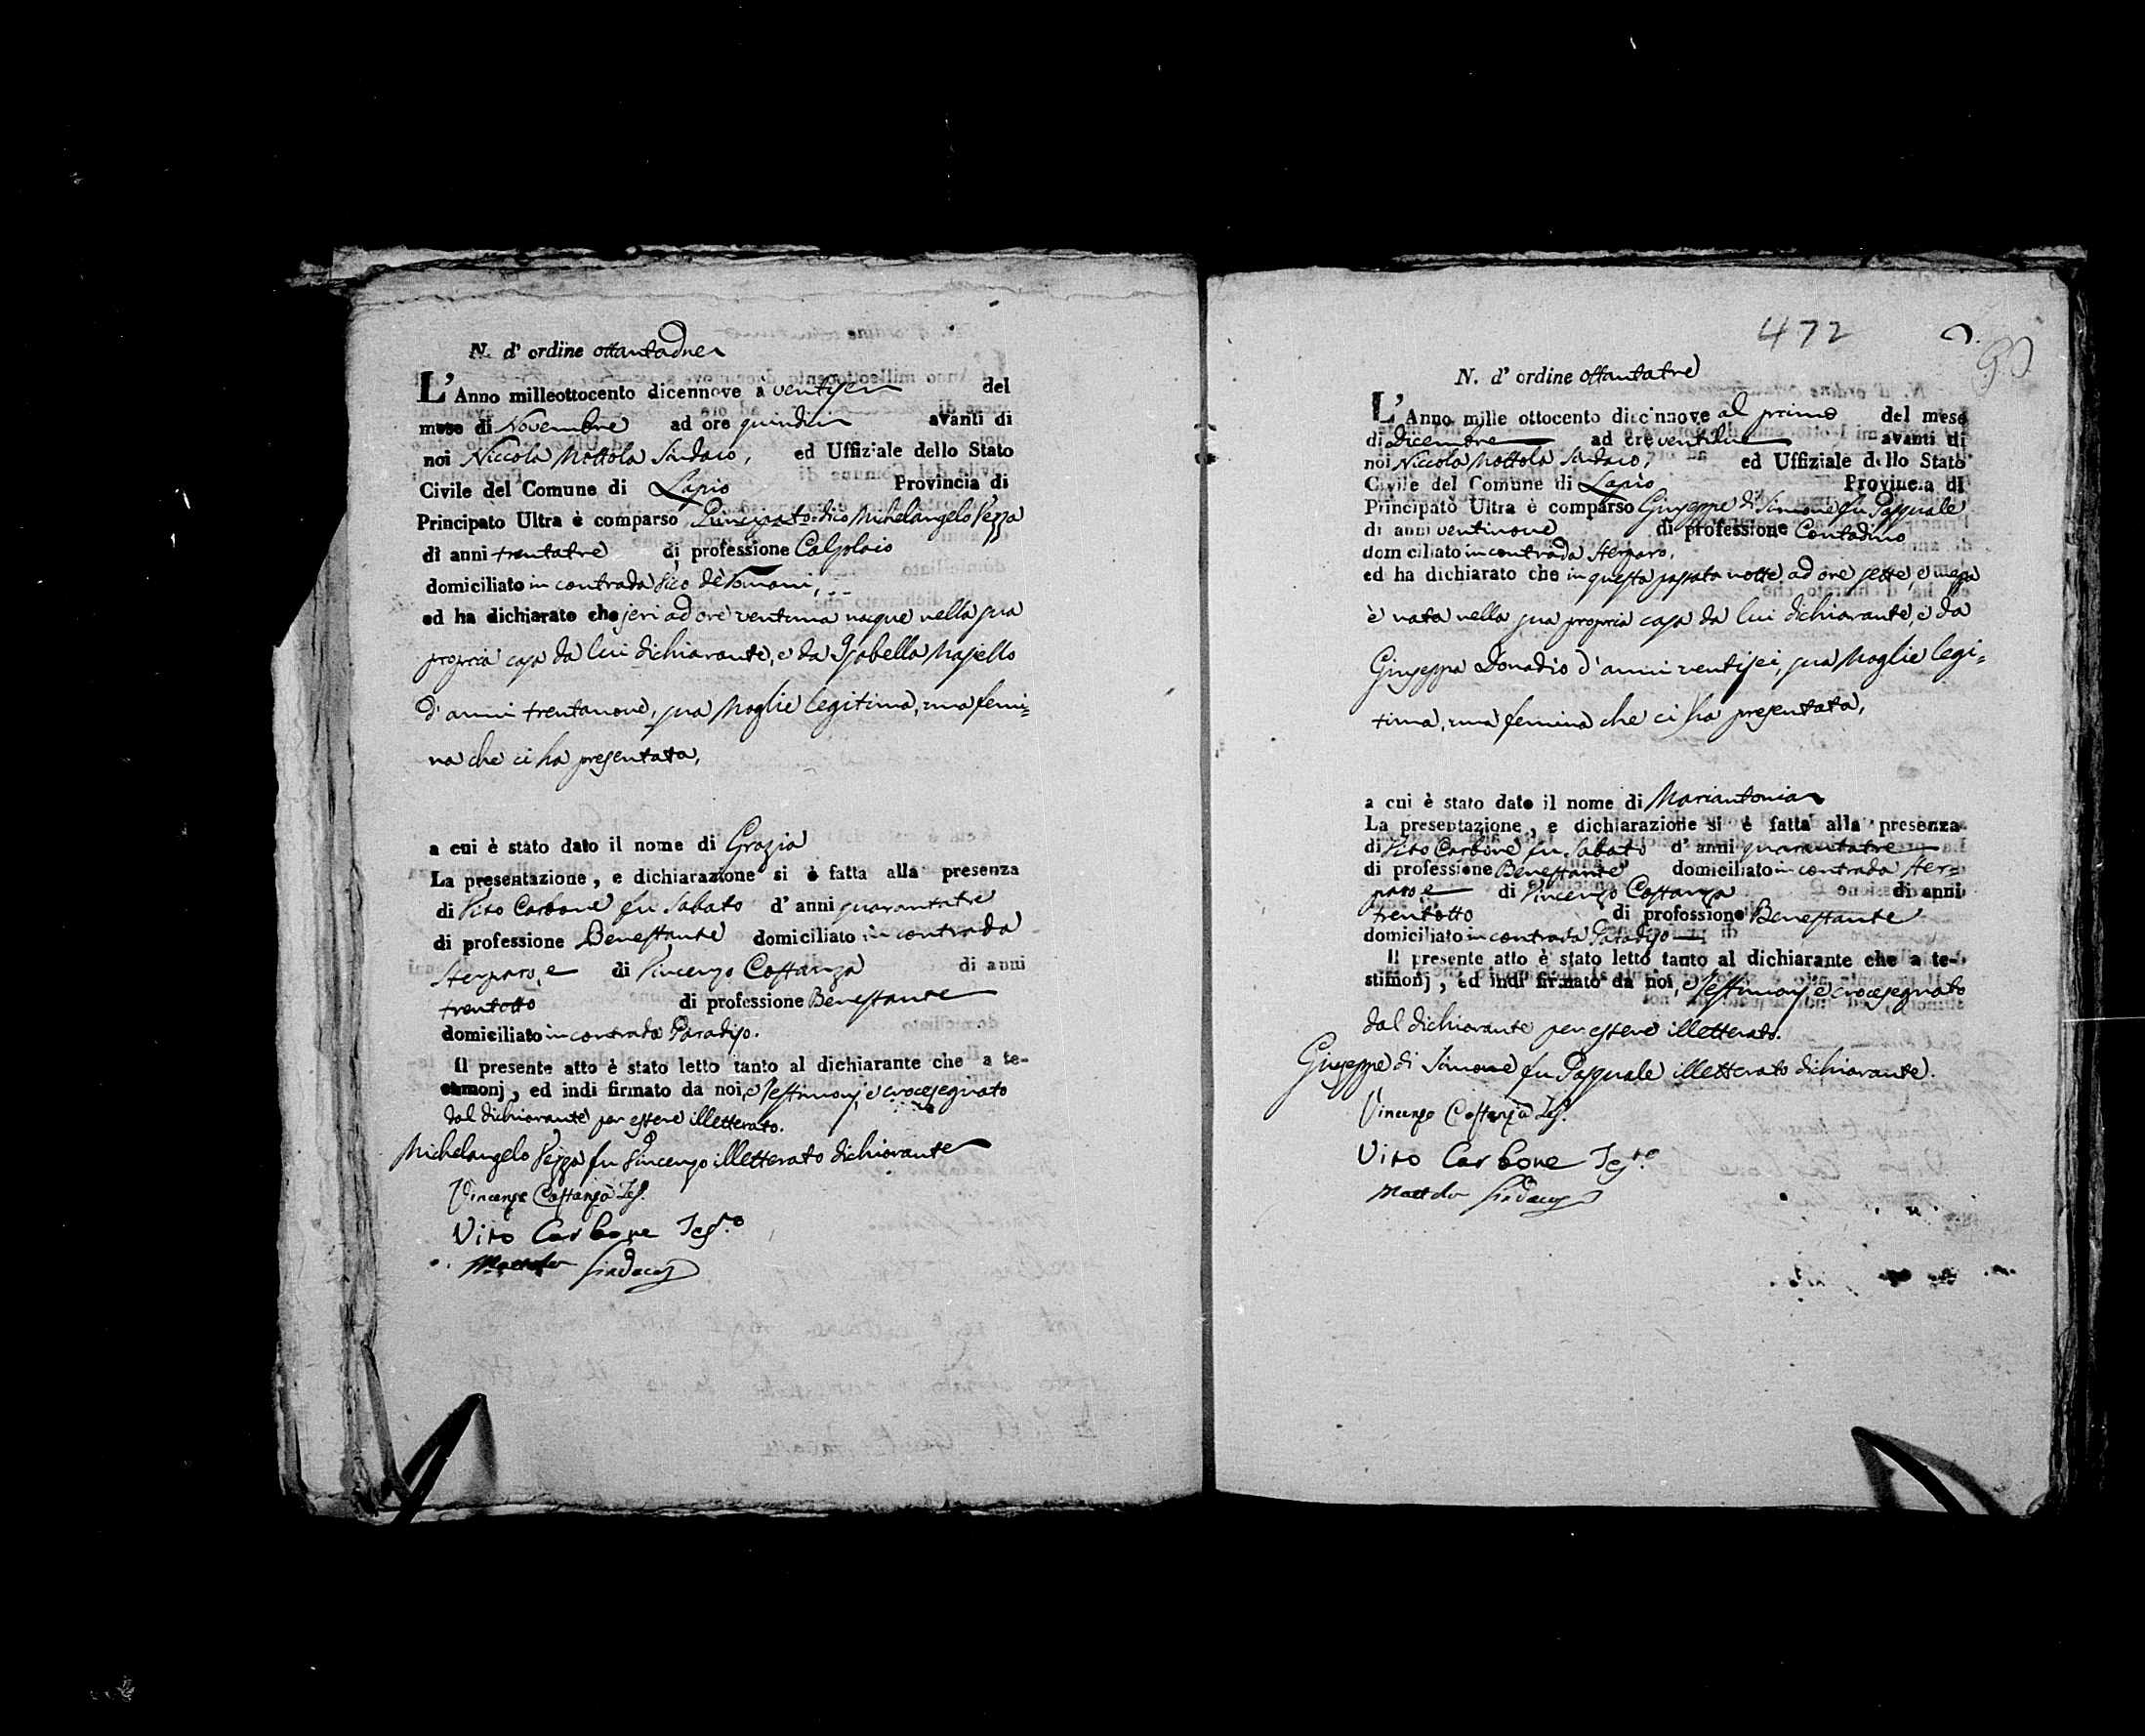 N. d' ordine ottantadue
L' Anno milleottocento dicennove a ventisei del
mese di Novembre ad ore quindici avanti di
noi Niccola Nottola Sindaco, ed Uffiziale dello Stato
Civile del Comune di Lapio Provincia di
Principato Ultra è comparso dico Michelangelo Pezza
di anni trentatre di professione Calzolaio
domiciliato in contrada Vico de
ed ha dichiarato che jeri ad ore ventuna nacque nella sua
propria casa da lui dichiarante, e da Isabella Masiello
d'anni trentanove, sua Moglie legitima, una femi=
na che ci ha presentata,
a cui è stato dato il nome di Grazia
La presentazione, e dichiarazione si è fatta alla presenza
di Vito Carbone fu Sabato d' anni quarantatre
di professione Benestante domiciliato in contrada
Sterparo, e di Vincenzo Costanza di anni
trentotto di professione Benestante
domiciliato in contrada Paradiso.
Il presente atto è stato letto tanto al dichiarante che a te-
stimonj, ed indi firmato da noi, e Testimonj, e crocesegnato
dal dichiarante per essere illetterato.
Michelangelo Pezza fu Vincenzo illetterato dichiarante
Vincenzo Costanza Tes.
Vito Carbone Tes.to
Sindaco
472
N. d' ordine ottantatre
L' Anno mille ottocento diecinnove al primo del mese
di dicembre ad ore ventidue avanti di
noi Niccola Nottola Sindaco, ed Uffiziale dello Stato
Civile del Comune di Lapio Provincia di
Principato Ultra è comparso Giuseppe di Simone fu Pasquale
di anni ventinove di professione Contadino
domiciliato in contrada Sterparo,
ed ha dichiarato che in questa passata notte ad ore sette, e mezza
è nata nella sua propria casa da lui dichiarante, e da
Giuseppa Donadio d'anni ventisei, sua Moglie legi=
tima, una femina che ci ha presentata,
a cui è stato dato il nome di Mariantonia
La presentazione, e dichiarazione si è fatta alla presenza
di Vito Carbone fu Sabato d' anni quarantatre
di professione Benestante domiciliato in contrada Ster=
paro, e di Vincenzo Costanza di anni
trentotto di professione Benestante
domiciliato in contrada Paradiso
Il presente atto è stato letto tanto al dichiarante che a te-
stimonj, ed indi firmato da noi, e Testimonj, e crocesegnato
dal dichiarante per essere illetterato.
Giuseppe di Simone fu Pasquale illetterato dichiarante.
Vincenzo Costanza Tes.
Vito Carbone Tes.to
Sindaco